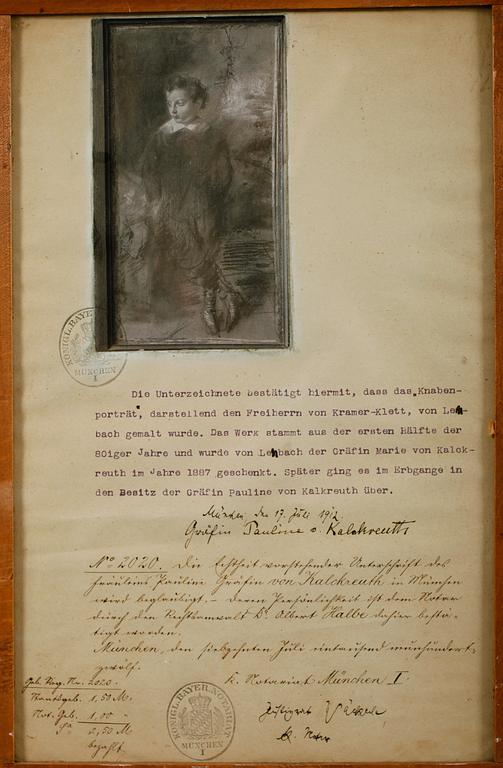 KÖNIGL. BAYER.
MÜNCHEN
I
Die Unterzeichnete bestätigt hiermit, dass das "Knaben-
porträt", darstellend den Freiherrn von Kramer-Klett, von Len-
bach gemalt wurde. Das Werk stammt aus der ersten Hälfte der
80iger Jahre und wurde von Lenbach der Gräfin Marie von Kalck-
reuth im Jahre 1887 geschenkt. Später ging es im Erbgange in
den Besitz der Gräfin Pauline von Kalkreuth über.
München, den 17. Juli 1912
Gräfin Pauline v. Kalckreuth
No 2020. Die Echtheit vorstehender Unterschrift des
Fräuleins Pauline Gräfin von Kalckreuth in München
wird beglaubigt. – Deren Persönlichkeit ist dem Notar
durch den Rechtsanwalt Dr. Albert Halbe dahier bestä-
tigt worden.
München, den siebzehnten Juli eintausend neunhundert
zwölf.
Geb. Reg. Nr. 2020.
Staatsgeb. 1,50 M.
Not. Geb. 1,00 "
Sa 2,50 M
bezahlt.
K. Notariat München I
KÖNIGL. BAYER. NOTARIAT
MÜNCHEN
I
K. Notar